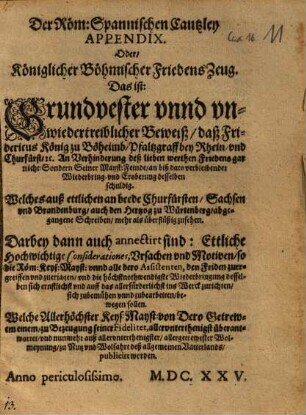 Der Röm: Spannischen Cantzley
APPENDIX.
Oder/
Königlicher Böhmischer Friedens Zeug.
Das ist:
Grundvester vnnd vn-
wiedertreiblicher Beweiß / daß Fri-
dericus König zu Böheimb / Pfaltzgraff bey Rhein / vnd
Churfürst / ꝛc. An Verhinderung deß lieben werthen Friedens gar
nicht: Sondern Seiner Mayst: Feinde / an biß dato verbliebender
Wiederbring- vnd Eroberung desselben
schuldig.
Welches auß etlichen an beede Churfürsten / Sachsen
vnd Brandenburg / auch den Hertzog zu Würtenberg / abge-
gangene Schreiben / mehr als überflüssig zusehen.
Darbey dann auch annectirt sind: Ettliche
Hochwichtige Considerationes, Vrsachen vnd Motiven, so
die Röm: Keys: Mayst: vnnd alle dero Assistenten, den Frieden zuer-
greiffen vnd zuerjagen / vnd die höchstnothwendigste Wiederbringung dessel-
ben sich ernstlichst vnd auß das allerförderlichst ins Werck zurichten /
sich zubemühen vnnd zubearbeiten / be-
wegen sollen.
Welche Allerhöchster Keys: Mayst: von Dero Getrew-
em einem / zu Bezeugung seiner Fidelitet, allervnterthenigst überant-
wortet / vnd nunmehr auß allervnterthenigster / allergetrewester Wol-
meynung / zu Nutz vnd Wolfahrt deß allgemeinen Vatterlands /
publicirt werden.
Anno periculosissimo. M. DC. XXV.
11
13.